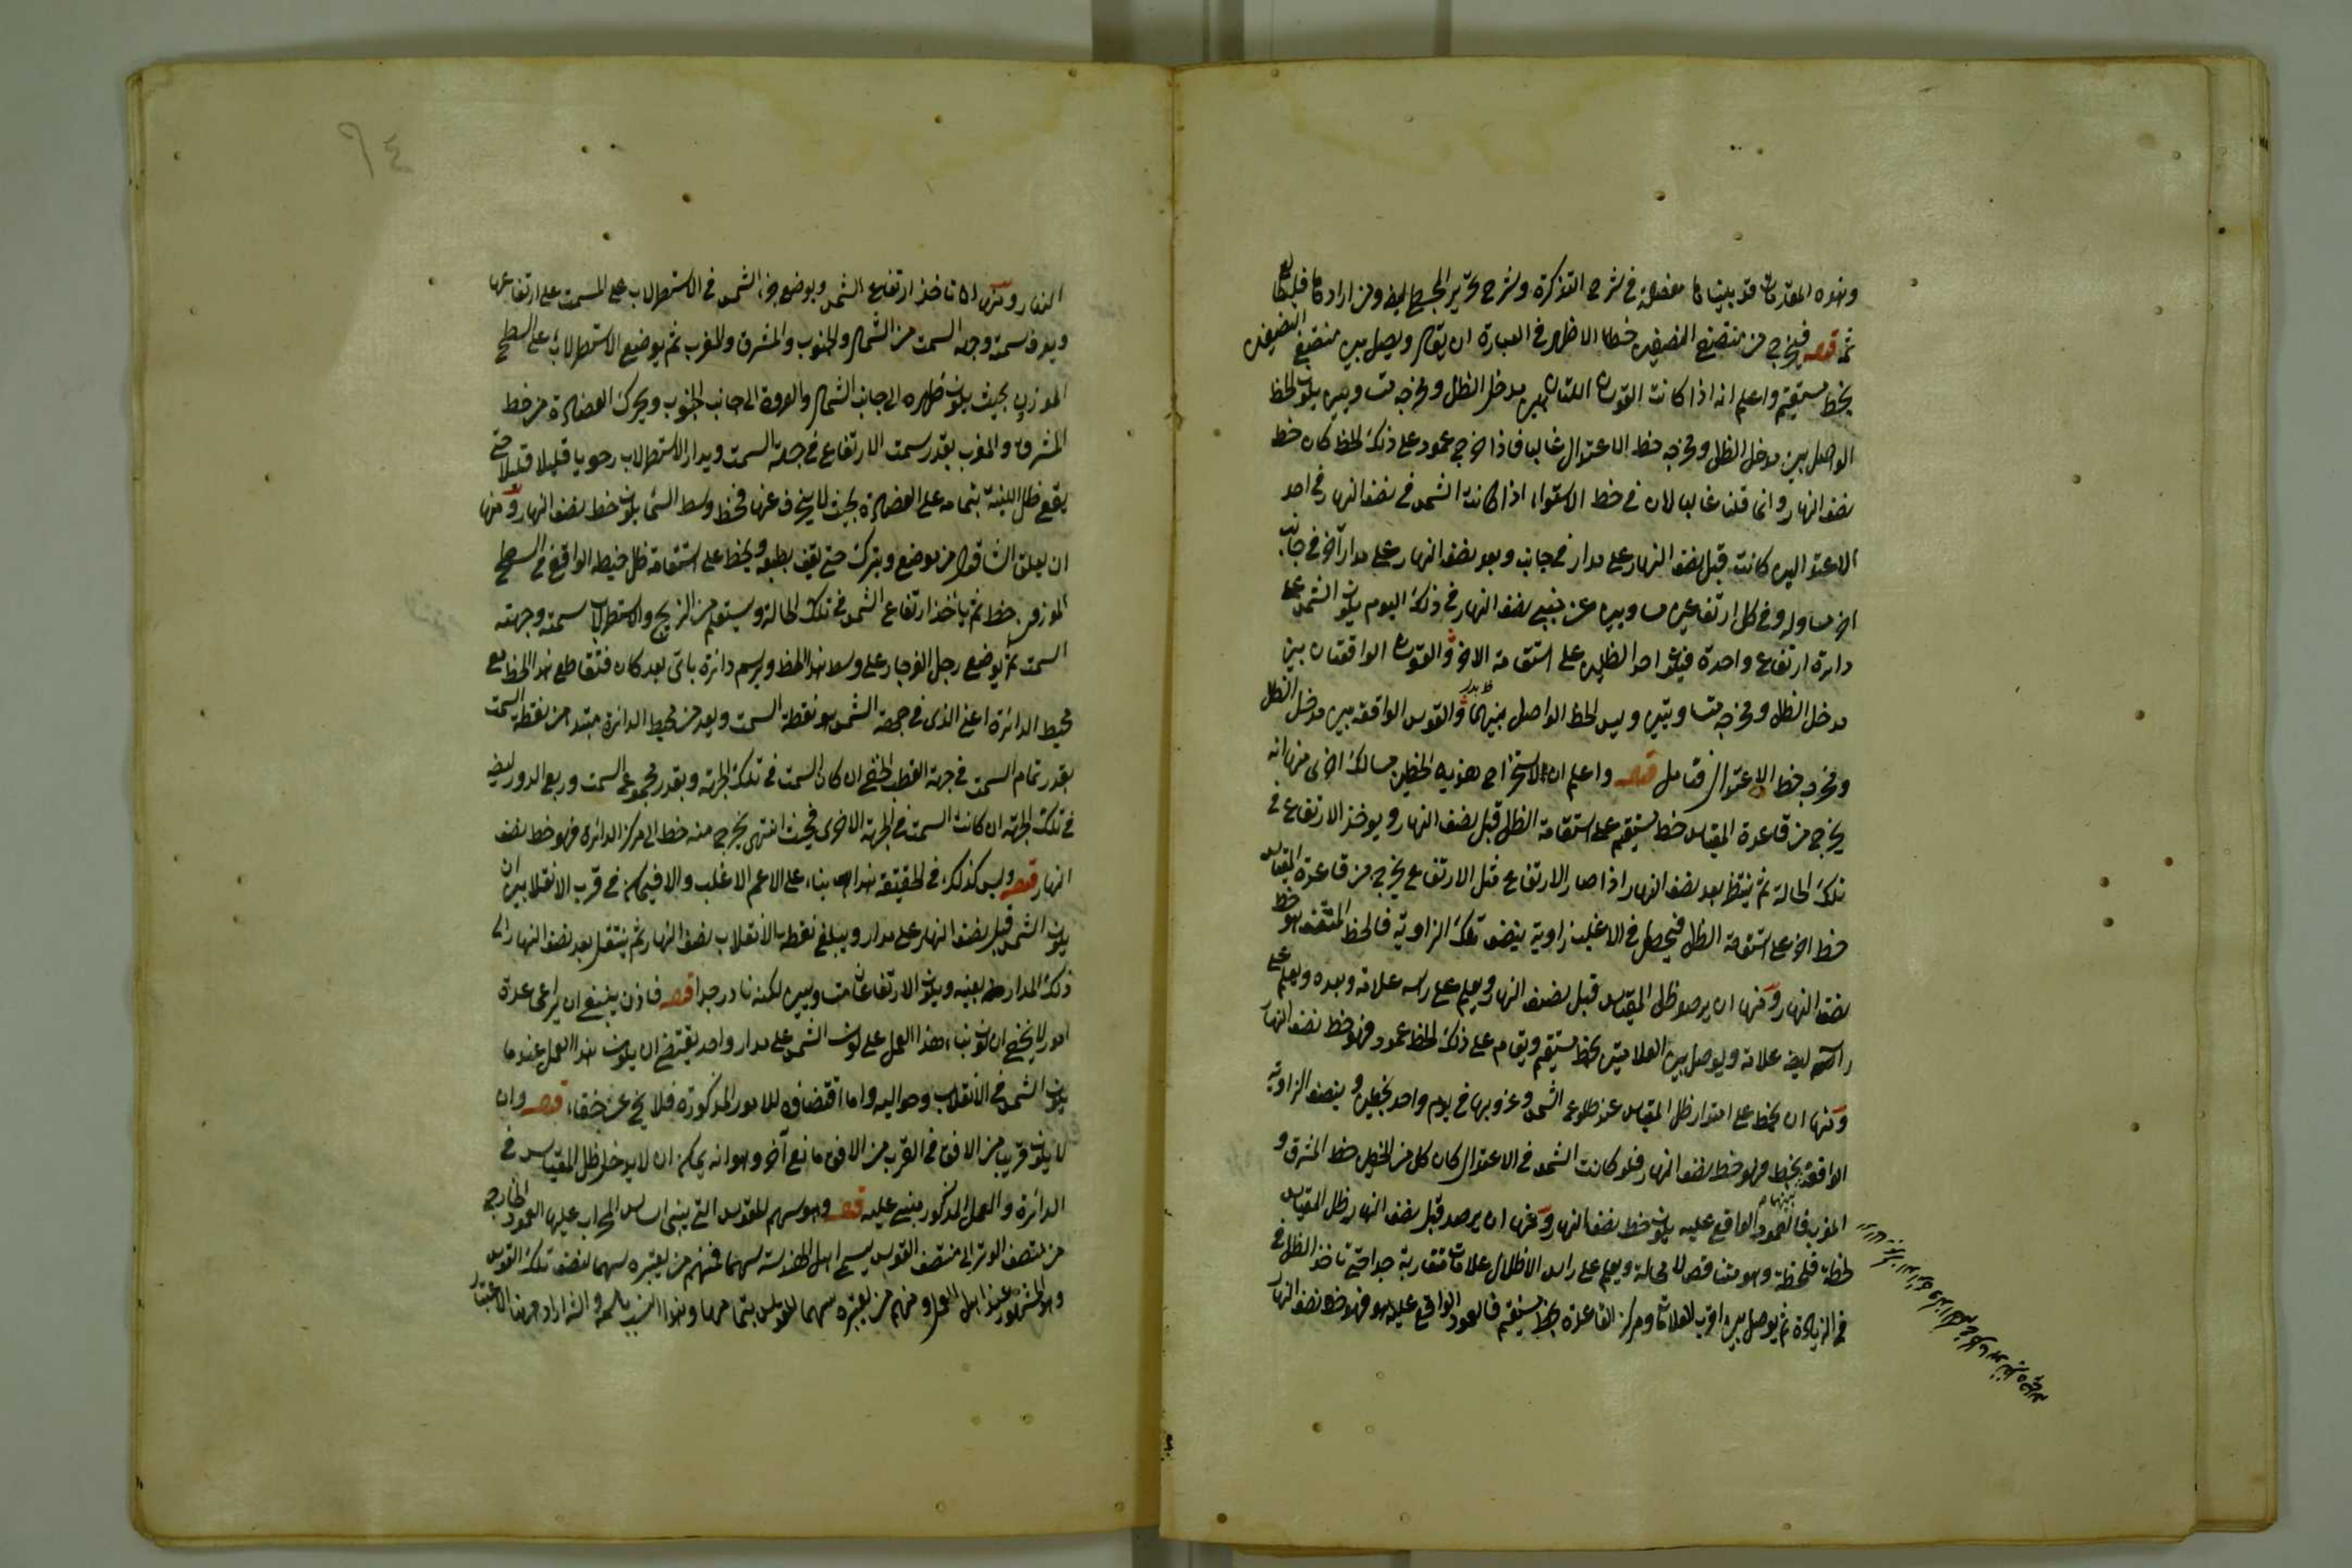 وهذه المقدمات قد بيناها مفصلة في شرح التذكرة وشرح تحرير المجسطي ايضا ومن ارادها فليطالع
ثمة قوله فيخرج من منتصفي النصفين خطا الاظهر في العبارة ان يقال ويصل بين منتصفي النصفين
بخط مستقيم واعلم انه اذا كانت القوسان اللتان بين مدخل الظل ومخرجه متساويين يكون الخط
الواصل بين مدخل الظل ومخرجه خط الاعتدال غالبا فاذا اخرج عمود على ذلك الخط كان خط
نصف النهار وانما قلنا غالبا لان في خط الاستواء اذا كانت الشمس في نصف النهار في احد
الاعتدالين كانت قبل نصف النهار على مدار في جانب وبعد نصف النهار على مدار آخر في جانب
آخر مساو له وفي كل ارتفاعين متساويين عن جنبي نصف النهار في ذلك اليوم يكون الشمس على
دائرة ارتفاع واحدة فيقع احد الظلين على استقامة الآخر والقوسان الواقعتان بين
مدخل الظل ومخرجه متساويتين وليس الخط الواصل بينهما والقوس الواقعة بين مدخل الظل
ومخرجه خط الاعتدال فتامل قوله واعلم ان لاستخراج هذين الخطين مسالك اخرى منها انه
يخرج من قاعدة المقياس خط مستقيم على استقامة الظل قبل نصف النهار ويوخذ الارتفاع في
تلك الحالة ثم ينتظر بعد نصف النهار اذا صار الارتفاع مثل الارتفاع يخرج من قاعدة المقياس
خط آخر على استقامة الظل فيحصل في الاغلب زاوية ينصف تلك الزاوية فالخط المنصف هو خط
نصف النهار ومنها ان يرصد ظل المقياس قبل نصف النهار ويعلم على راسه علامة وبعده ويعلم على
راسه ايضا علامة ويوصل بين العلامتين بخط مستقيم ويقام على ذلك الخط عمود فهو خط نصف النهار
ومنها ان يخط على امتداد ظل المقياس عند طلوع الشمس وغروبها في يوم واحد بخطين وينصف الزاوية
الواقعة بينهما بخط فهو خط نصف النهار فلو كانت الشمس في الاعتدال كان كل من الخطين خط المشرق و
المغرب فالعمود الواقع عليه يكون خط نصف النهار ومنها ان يرصد قبل نصف النهار ظل المقياس
لحظة فلحظة وهو متناقص لا محالة ويعلم على راس الاظلال علامات متقاربة جدا حتى تاخذ الظل في
في الزيادة ثم يوصل بين اقرب العلامات ومركز القاعدة بخط مستقيم فالعمود الواقع عليه هو فهو خط نصف النهار
٩٤
النهار ومنها ان تاخذ ارتفاع الشمس ويوضع جزء الشمس في الاسطرلاب على المسمت على ارتفاعها
ويعرف سمته وجهة السمت من الشمال والجنوب والمشرق والمغرب ثم يوضع الاسطرلاب على السطح
الموزون بحيث يكون ظهره الى جانب الشمال والعروة الى جانب الجنوب ويحرك العضادة من خط
المشرق والمغرب بقدر سمت الارتفاع في جهة السمت ويدار الاسطرلاب رحويا قليلا قليلا حتى
يقع ظل اللبنة بتمامه على العضادة بحيث لا ينحرف عنها فخط وسط السماء يكون خط نصف النهار ومنها
ان يعلق الشاقول من موضع ويترك حتى يقف بطبعه ويخط على استقامة ظل خيطه الواقع في السطح
الموزون خط ثم ياخذ ارتفاع الشمس في تلك الحالة ويستعلم من الزيج والاسطرلاب سمته وجهة
السمت ثم يوضع رجل الفرجار على وسط هذا الخط ويرسم دائرة باي بعد كان فتقاطع هذا الخط مع
محيط الدائرة اعني الذي في جهة الشمس هو نقطة السمت ويعد من محيط الدائرة مبتدا من نقطة السمت
بقدر تمام السمت في جهة القطب الخفي ان كان السمت في تلك الجهة وبقدر مجموع السمت وربع الدور ايضا
في تلك الجهة ان كانت السمت في الجهة الاخرى فحيث انتهى يخرج منه خط الى مركز الدائرة فهو خط نصف
النهار قوله وليس كذلك في الحقيقة هذا بناء على الاعم الاغلب والا فيمكن في قرب الانقلابين ان
يكون الشمس قبل نصف النهار على مدار ويبلغ نقطة الانقلاب نصف النهار ثم ينتقل بعد نصف النهار الى
ذلك المدار بعينه ويكون الارتفاعان متساويين لكنه نادر جدا قوله فاذن ينبغي ان يراعى عدة
امور لا يخفى ان كون بناء هذا العمل على كون الشمس على مدار واحد يقتضي ان يكون هذا العمل عندما
يكون الشمس في الانقلاب وحواليه واما اقتضاؤه للامور المذكورة فلا يخ عن خفاء قوله وان
لا يكون قريبا من الافق في القرب من الافق مانع آخر وهو انه يمكن ان لا يدخل ظل المقياس في
الدائرة والعمل المذكور مبني عليه قوله وهو سهم للقوس التي يبنى اساس المحراب عليها العمود الخارج
من منتصف الوتر الى منتصف القوس يسمى اهل الهندسة سهما فمنهم من يعتبره سهما لنصف تلك القوس
وهو المشهور عند اهل العمل ومنهم من يعتبره سهما للقوس بتمامها وهذا والشارح اراد ههنا الاعتبار